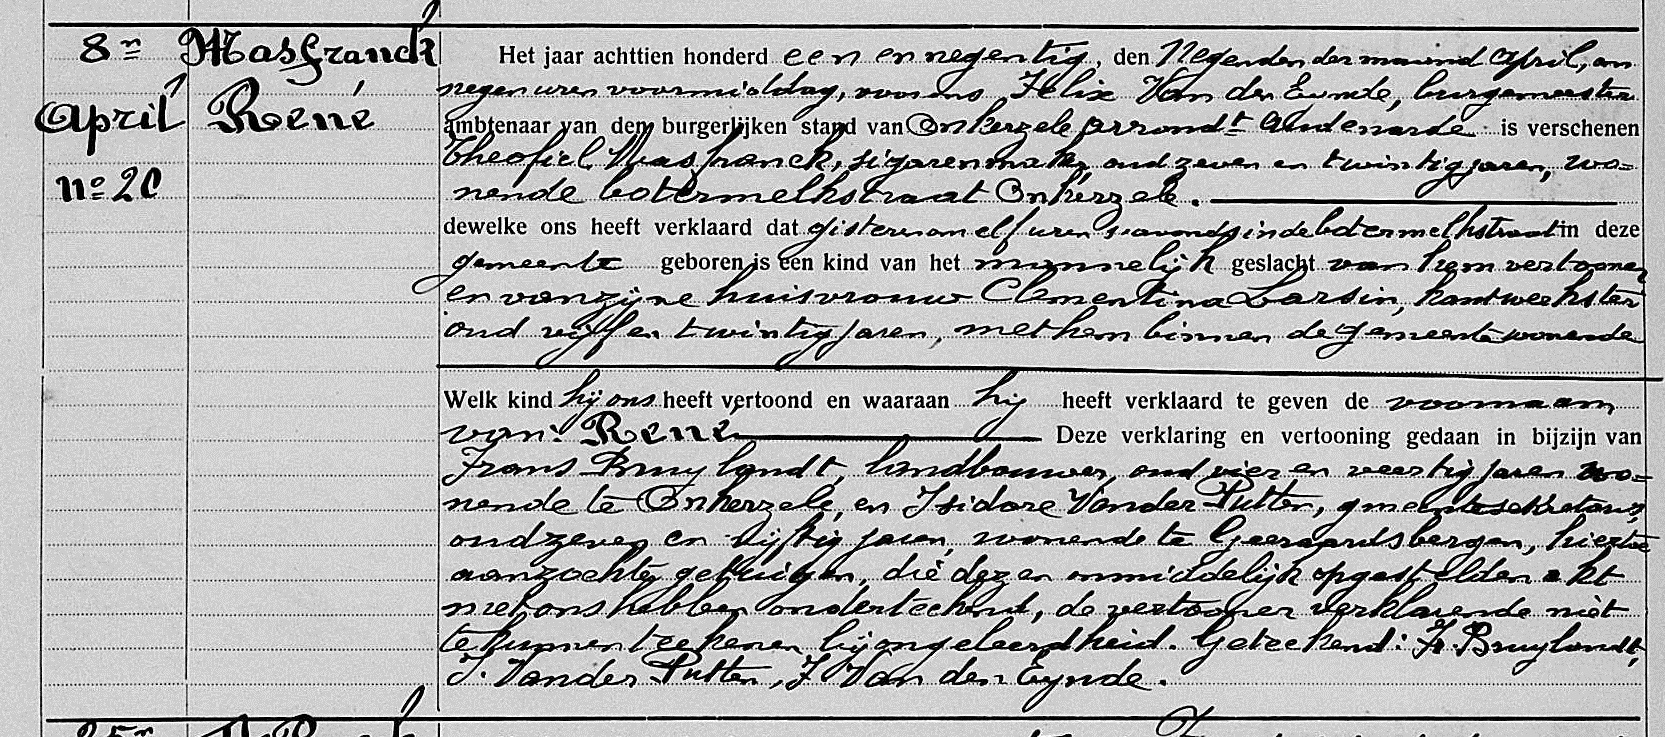 8n Masfranck
April René
No 20
Het jaar achttien honderd een en negentig, den Negenden der maand April, om
negen uren voormiddag, voor ons Felix Van den Eynde, burgemeester
ambtenaar van den burgerlijken stand van Onkerzele arrondt Audenarde is verschenen
Theofiel Masfranck, sigarenmaker, oud zeven en twintig jaren, wo=
nende botermelkstraat Onkerzele.
dewelke ons heeft verklaard dat gisteren om elf uren s'avonds in de botermelkstraat in deze
gemeente geboren is een kind van het mannelijk geslacht van hem vertooner
en van zijne huisvrouw Clementina Larsin, kantwerkster
oud vijf en twintig jaren, met hem binnen de gemeente wonende
Welk kind hij ons heeft vertoond en waaraan hij heeft verklaard te geven de voornaam
van: René Deze verklaring en vertooning gedaan in bijzijn van
Frans Bruylandt, landbouwer, oud vier en veertig jaren wo=
nende te Onkerzele, en Isidore Vander Putten, gmeentesekretaris,
oud zeven en vijftig jaren, wonende te Geeraardsbergen, hiertoe
aanzochte getuigen, die dezen onmiddelijk opgestelden akt
met ons hebben onderteekend, de vertooner verklarende niet
te kunnen teekenen bij ongeleerdheid. Geteekend: Fr. Bruylandt,
I. Vander Putten, F Van den Eynde.
25n